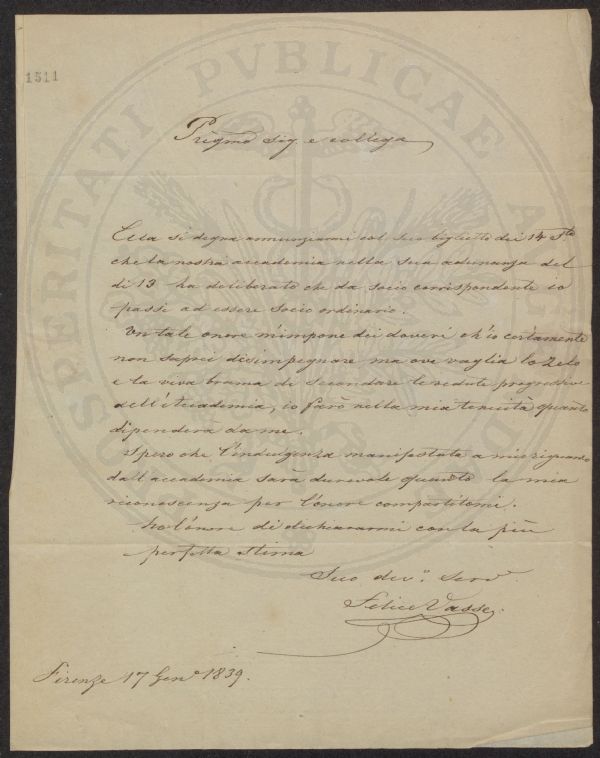 1511
PROSPERITATI PVBLICAE
Pregmo Sig. e collega
Ella si degna annunziarmi col suo biglietto dei 14 Sto
che la nostra accademia nella sua adunanza del
di 13 ha deliberato che da socio corrispondente io
passi ad essere socio ordinario.
Un tale onore m'impone dei doveri ch'io certamente
non saprei disimpegnare ma ove vaglia lo zelo
e la viva brama di secondare le vedute progressive
dell'Accademia, io farò nella mia tenuità quanto
dipenderà da me.
Spero che l'indulgenza manifestata a mio riguardo
dall'accademia sarà durevole quanto la mia
riconoscenza per l'onore compartitomi.
Ho l'onore di dichiararmi con la più
perfetta stima
Suo dev.o Serv.
Felice Vasse.
Firenze 17 Gen.o 1839.